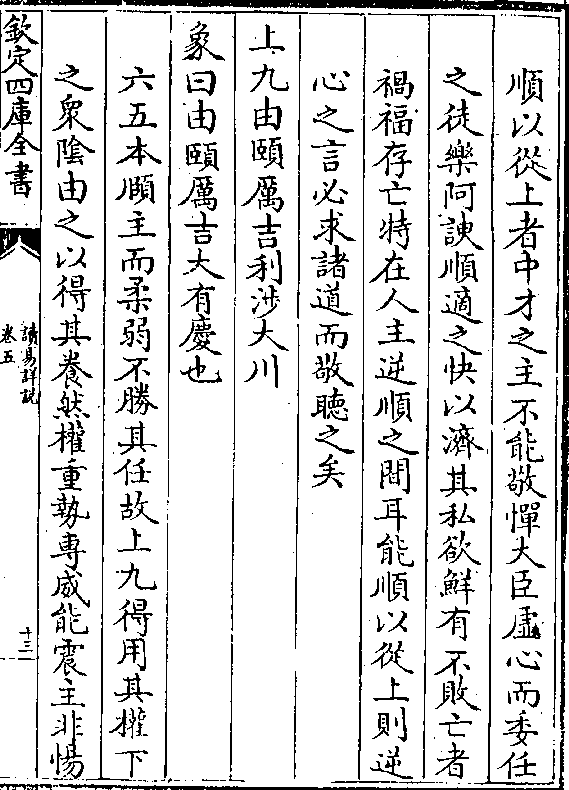 順以從上者中才之主不能敬憚大臣虛心而委任
之徒樂阿諛順適之快以濟其私欲鮮有不敗亡者
禍福存亡特在人主逆順之間耳能順以從上則逆
心之言必求諸道而敬聽之矣
上九由頤厲吉利涉大川
象曰由頤厲吉大有慶也
六五本頤主而柔弱不勝其任故上九得用其權下
之衆陰由之以得其養然權重勢專威能震主非惕
欽定四庫全書
讀易詳說
卷五
十三